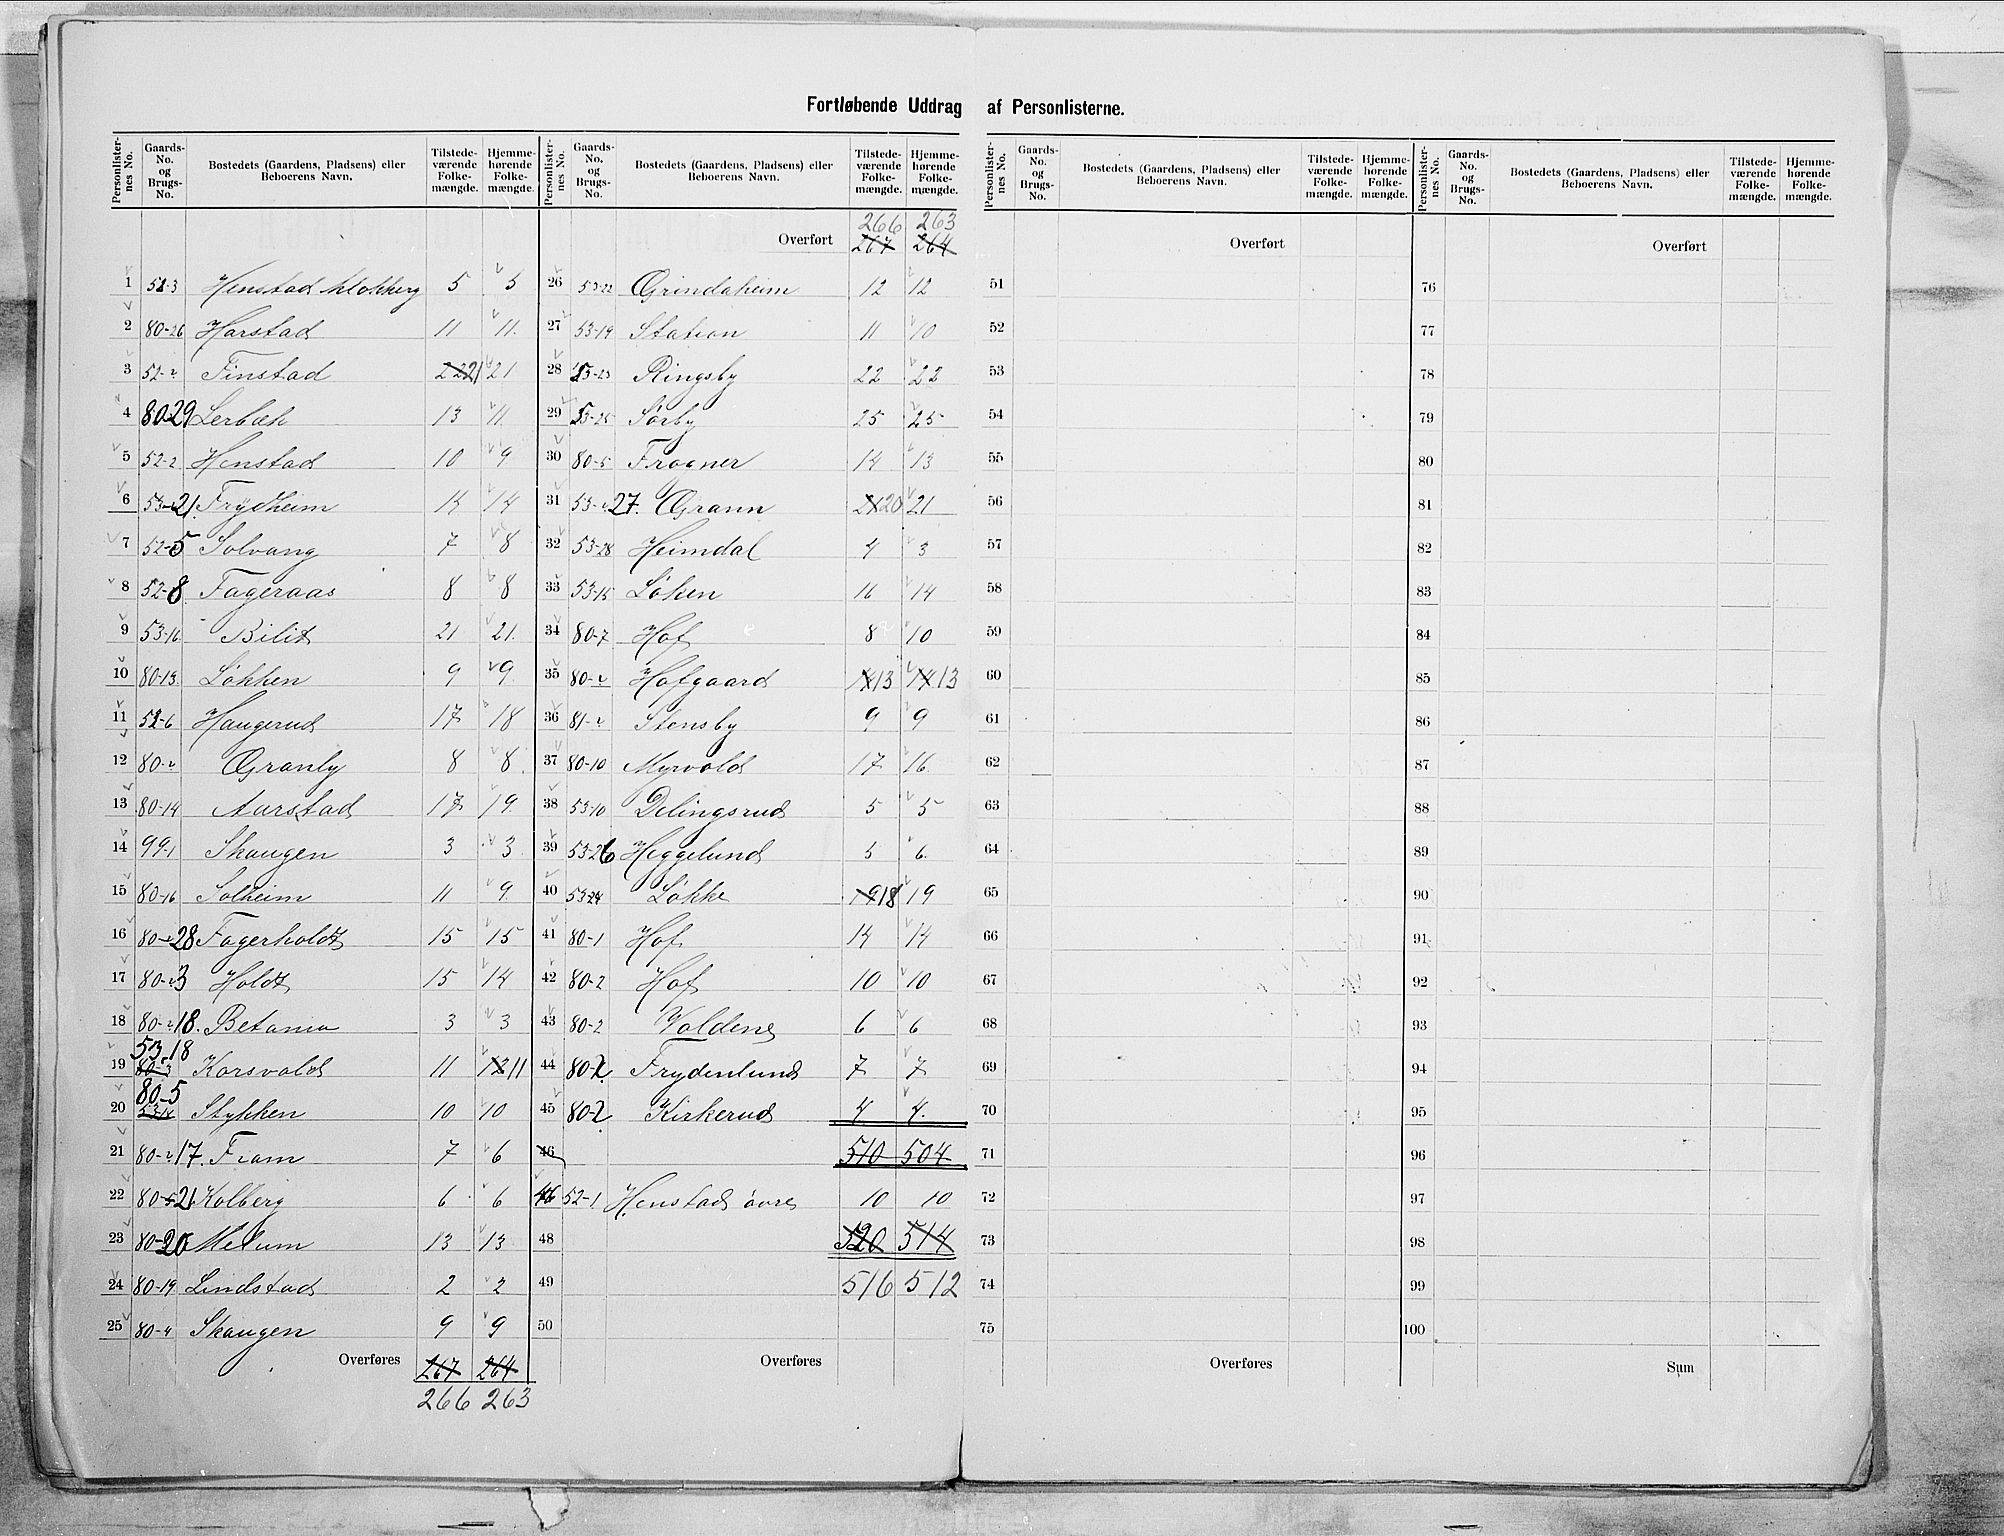 Fortløbende Uddrag af Personlisterne.
Personlisternes No. | Gaards-No. og Brugs-No. | Bostedets (Gaardens, Pladsens) eller Beboerens Navn. | Tilstedeværende Folkemængde. | Hjemmehørende Folkemængde.
1 | 52-3 | Henstad Klokkerg | 5 | 5
2 | 80-26 | Harstad | 11 | 11.
3 | 52- | Finstad | 22 21 | 21
4 | 80 29 | Lerbæk | 13 | 11
5 | 52-2 | Henstad | 10 | 9
6 | 53-21. | Frydheim | 14 | 14
7 | 52-5 | Solvang | 7 | 8
8 | 52-8 | Fageraas | 8 | 8
9 | 53-16 | Bilit | 21 | 21.
10 | 80-13. | Løkken | 9 | 9.
11 | 52-6 | Haugerud | 17 | 18
12 | 80- | Granly | 8 | 8.
13 | 80-14 | Aarstad | 17 | 19.
14 | 99-1 | Skaugen | 3 | 3.
15 | 80-16 | Solheim | 11 | 9.
16 | 80-28 | Fagerholdt | 15 | 15
17 | 80-3 | Holdt | 15 | 14
18 | 80-18. | Betania | 3 | 3
19 | 53.18 80-3 | Korsvold | 11 | 12 11
20 | 80-5 53-18 | Stykken | 10 | 10
21 | 80-17. | Fram | 7 | 6
22 | 80-21 | Kolberg | 6 | 6
23 | 80-20 | Melum | 13 | 13.
24 | 80-19 | Lindstad | 2 | 2
25 | 80-4 | Skaugen | 9 | 9
Overføres 267 264
266 263
Personlisternes No. | Gaards-No. og Brugs-No. | Bostedets (Gaardens, Pladsens) eller Beboerens Navn. | Tilstedeværende Folkemængde. | Hjemmehørende Folkemængde.
266 263
Overført 267 264
26 | 53-22 | Grindaheim | 12 | 12
27 | 53-19 | Station | 11 | 10
28 | 53-23 | Ringsby | 22 | 22
29 | 53-25 | Sørby | 25 | 25
30 | 80-5 | Frogner | 14 | 13
31 | 53-27. | Grann | 21 20 | 21
32 | 53-28 | Heimdal | 4 | 3
33 | 53-15 | Løken | 16 | 14
34 | 80-7 | Hof | 8 | 10
35 | 80- | Hofgaard | 14 13 | 14 13
36 | 81- | Stensby | 9 | 9
37 | 80-10 | Myrvold | 17 | 16.
38 | 53-10 | Delingsrud | 5 | 5
39 | 53-26 | Heggelund | 5 | 6.
40 | 53-24 | Løkke | 19 18 | 19
41 | 80-1 | Hof | 14 | 14
42 | 80-2 | Hof | 10 | 10
43 | 80-2 | Voldene | 6 | 6
44 | 80-2 | Frydenlund | 7 | 7
45 | 80-2 | Kirkerud | 4 | 4.
46 | 510 | 504
46 | 52-1 | Henstad øvre | 10 | 10
48 | 520 | 514
49 | 516 | 512
50
Overføres
Personlisternes No. | Gaards-No. og Brugs-No. | Bostedets (Gaardens, Pladsens) eller Beboerens Navn. | Tilstedeværende Folkemængde. | Hjemmehørende Folkemængde.
Overført
51
52
53
54
55
56
57
58
59
60
61
62
63
64
65
66
67
68
69
70
71
72
73
74
75
Overføres
Personlisternes No. | Gaards-No. og Brugs-No. | Bostedets (Gaardens, Pladsens) eller Beboerens Navn. | Tilstedeværende Folkemængde. | Hjemmehørende Folkemængde.
Overført
76
77
78
79
80
81
82
83
84
85
86
87
88
89
90
91
92
93
94
95
96
97
98
99
100
Sum